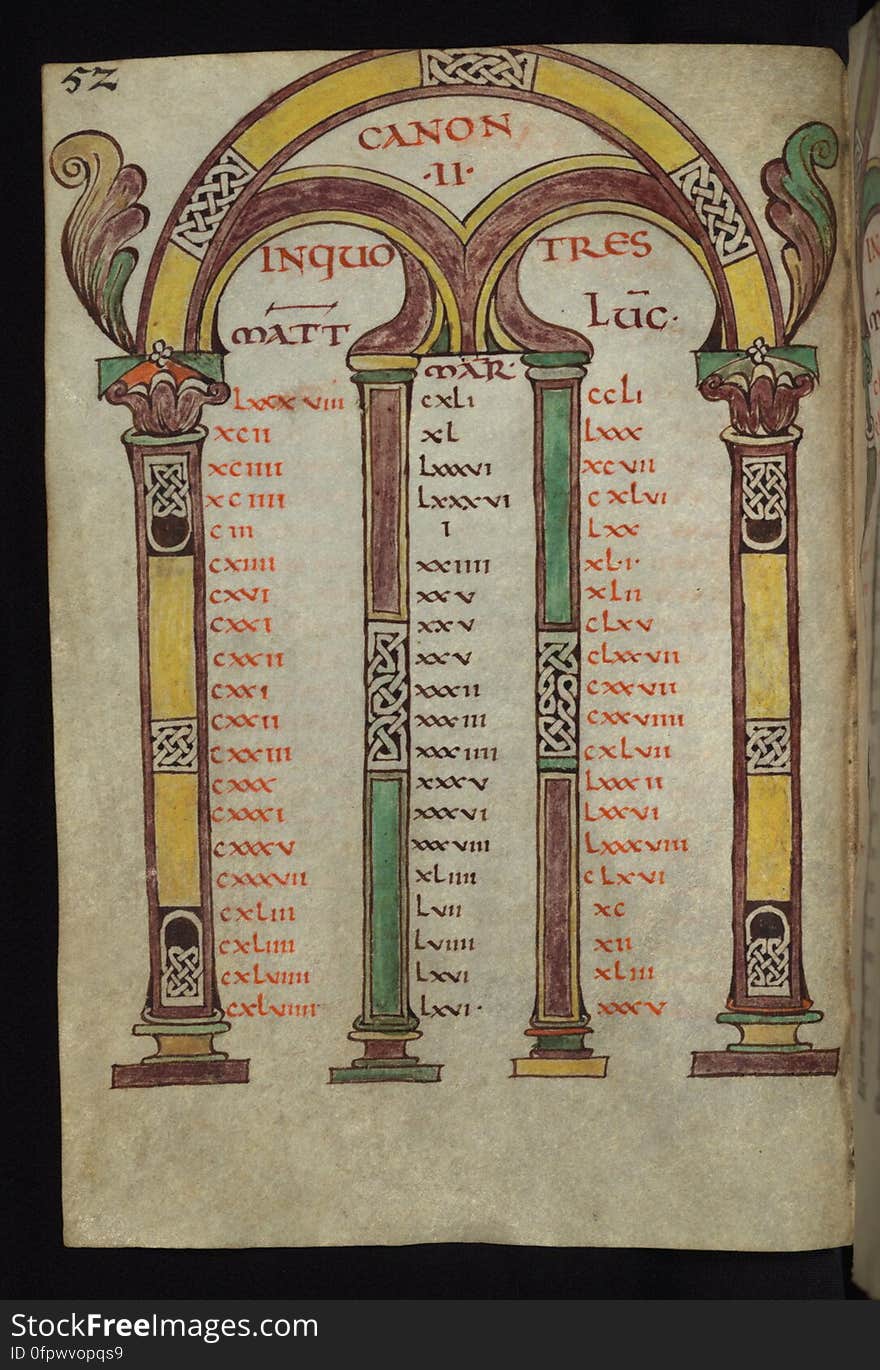 52
CANON
·II·
INQUO TRES
MATT MAR· LUC·
LXXXVIII CXLI CCLI
XCII XL LXXX
XCIIII LXXXVI XCVII
XCIIII LXXXVI CXLVI
CIII I LXX
CXIIII XXIIII XL·I·
CXVI XXV XLII
CXXI XXV CLXV
CXXII XXV CLXXVII
CXXI XXXII CXXVII
CXXII XXXIII CXXVIIII
CXXIII XXXIIII CXLVII
CXXX XXXV LXXXII
CXXXI XXXVI LXXVI
CXXXV XXXVIII LXXXVIII
CXXXVII XLIIII CLXVI
CXLIII LVII XC
CXLIIII LVIIII XII
CXLVIIII LXVI XLIII
CXLVIIII LXVI· XXXV
StockFreeImages.com
ID 0fpwvopqs9